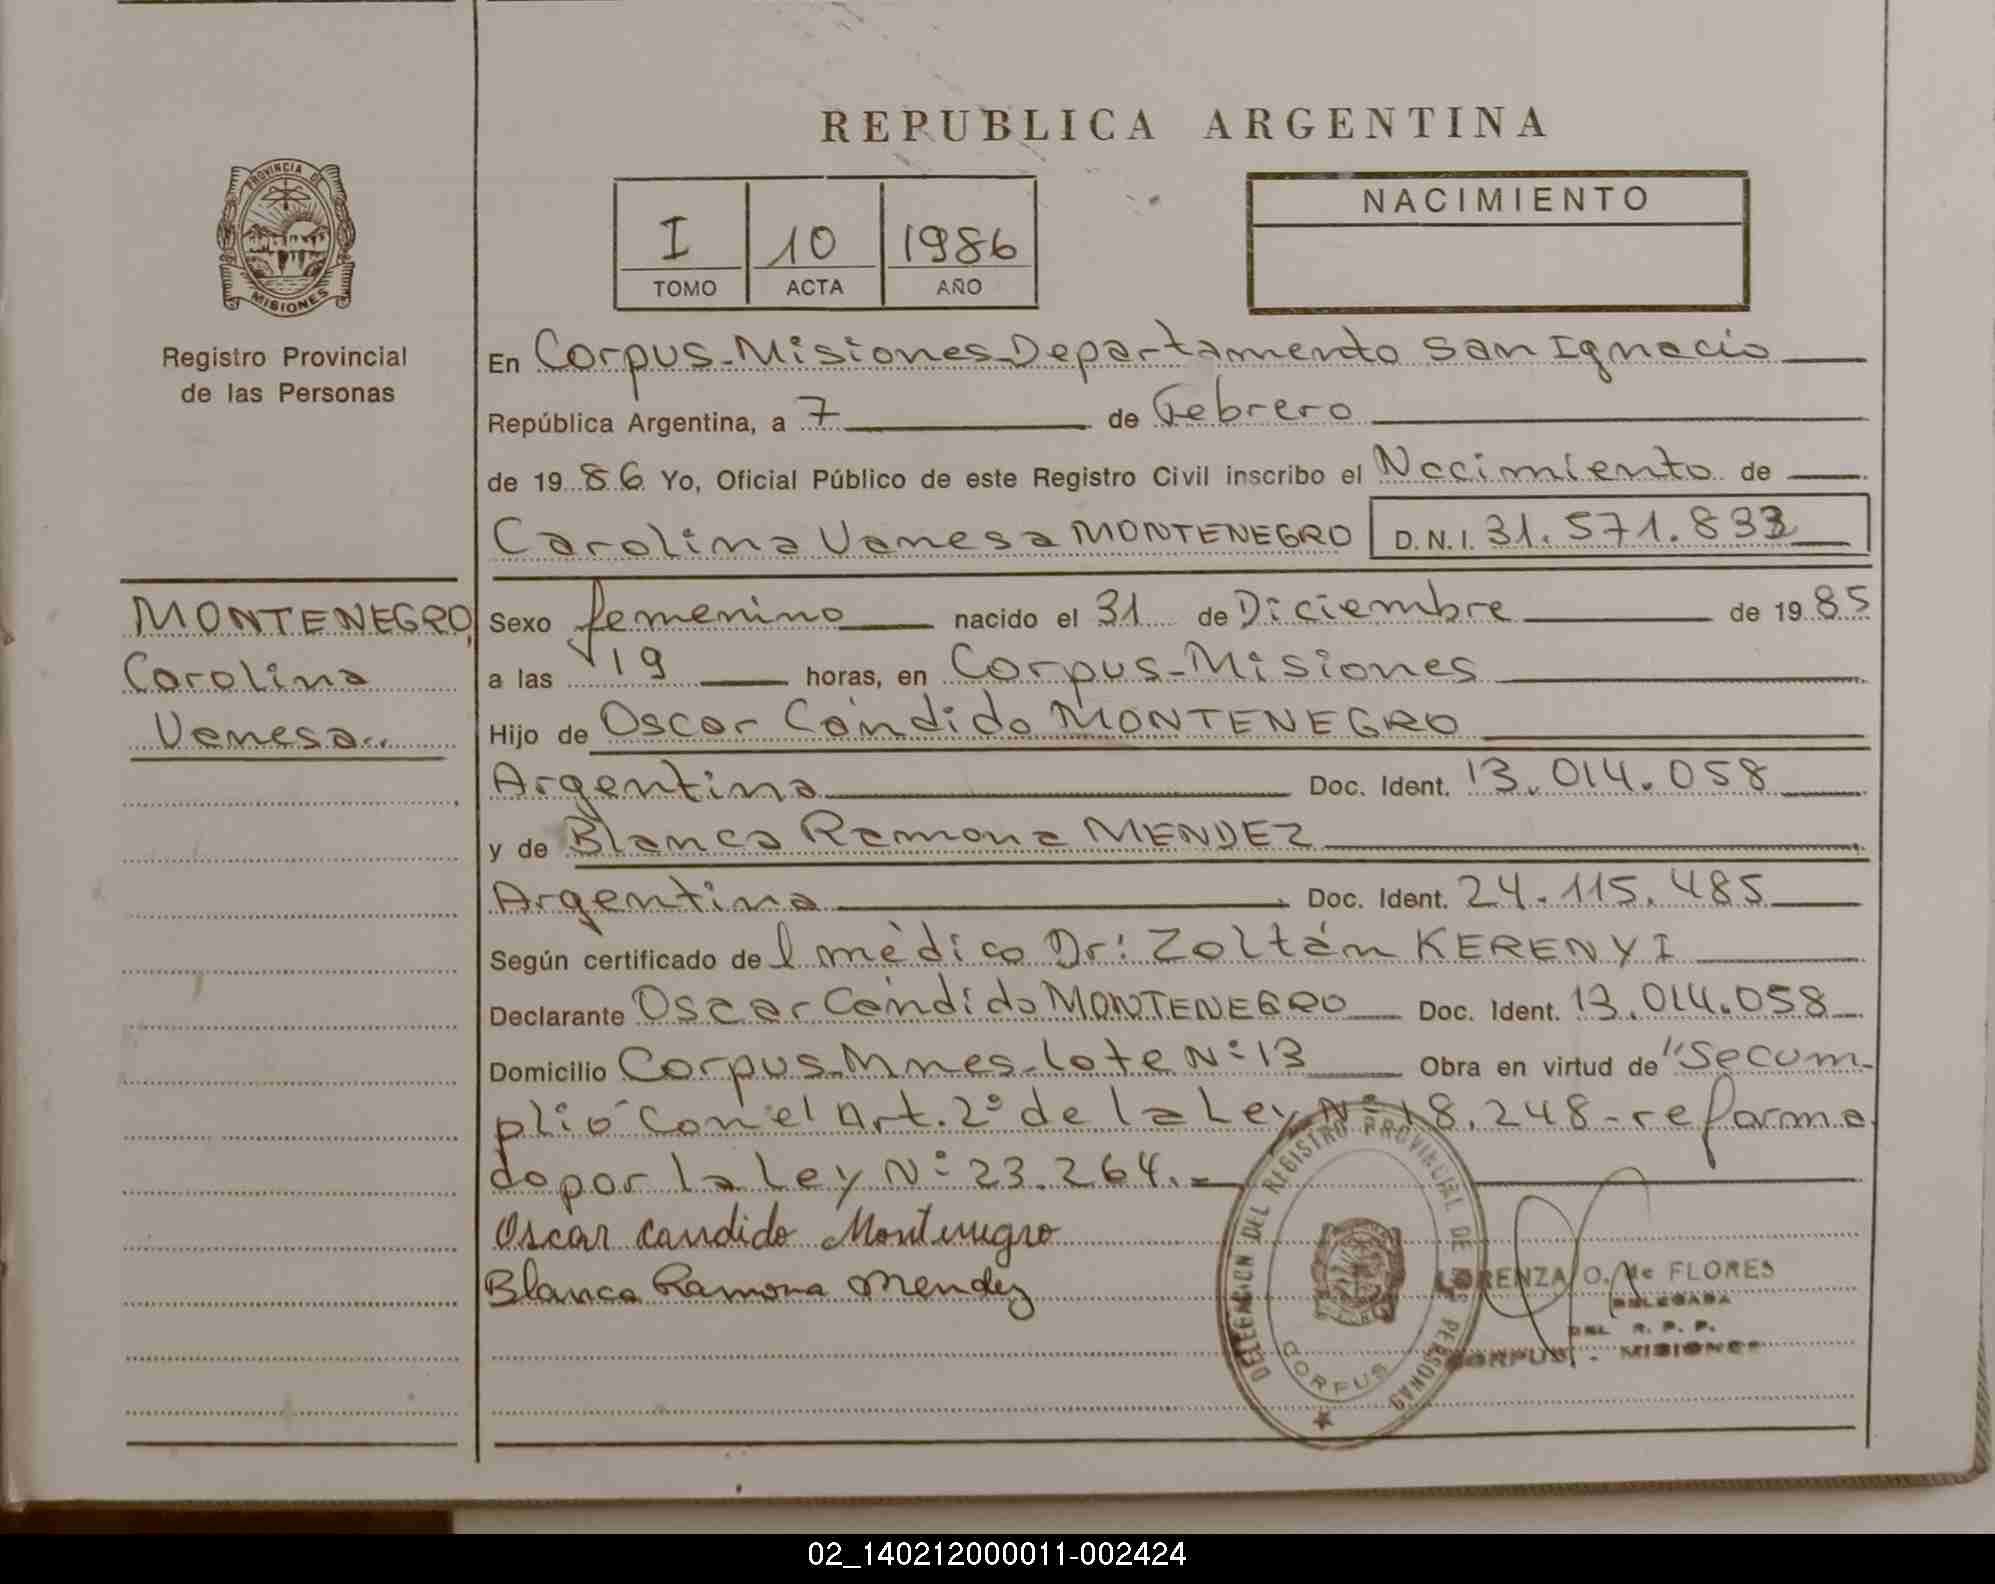 REPUBLICA ARGENTINA
PROVINCIA DE
MISIONES
Registro Provincial
de las Personas
I 10 1986
TOMO ACTA AÑO
NACIMIENTO
En Corpus-Misiones-Departamento San Ignacio
República Argentina, a 7 de Febrero
de 1986 Yo, Oficial Público de este Registro Civil inscribo el Nacimiento de
Carolina Vanesa MONTENEGRO D.N.I. 31.571.833
MONTENEGRO,
Carolina
Vanesa..
Sexo femenino nacido el 31 de Diciembre de 1985
a las 19 horas, en Corpus-Misiones
Hijo de Oscar Cándido MONTENEGRO
Argentina Doc. Ident. 13.014.058
y de Blanca Ramona MENDEZ
Argentina Doc. Ident. 24.115.485
Según certificado del mèdico Dr: Zoltán KERENYI
Declarante Oscar Cándido MONTENEGRO Doc. Ident. 13.014.058
Domicilio Corpus-Mnes-lote Nº13 Obra en virtud de "Se cum-
plió con el Art. 2º de la Ley Nº 18.248-reforma
do por la Ley Nº 23.264.-
Oscar candido Montenegro
Blanca Ramona Mendez
DELEGACION DEL REGISTRO PROVINCIAL DE LAS PERSONAS
CORPUS
LORENZA O. de FLORES
DELEGADA
DEL R. P. P.
CORPUS - MISIONES
02_140212000011-002424